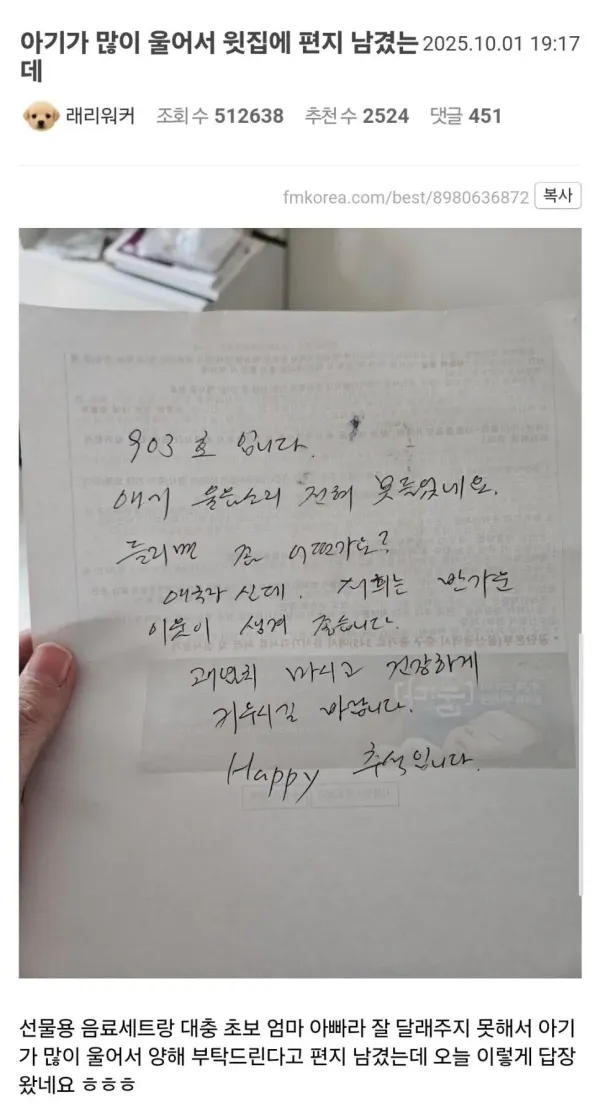 아기가 많이 울어서 윗집에 편지 남겼는 2025.10.01 19:17
데
래리워커 조회 수 512638 추천 수 2524 댓글 451
fmkorea.com/best/8980636872 복사
903호 입니다.
애기 울음소리 전혀 못들었네요.
들리면 좀 어떤가요?
애국자 신데. 저희는 반가운
이웃이 생겨 좋습니다.
괘념치 마시고 건강하게
키우시길 바랍니다.
Happy 추석입니다.
선물용 음료세트랑 대충 초보 엄마 아빠라 잘 달래주지 못해서 아기
가 많이 울어서 양해 부탁드린다고 편지 남겼는데 오늘 이렇게 답장
왔네요 ㅎㅎㅎ